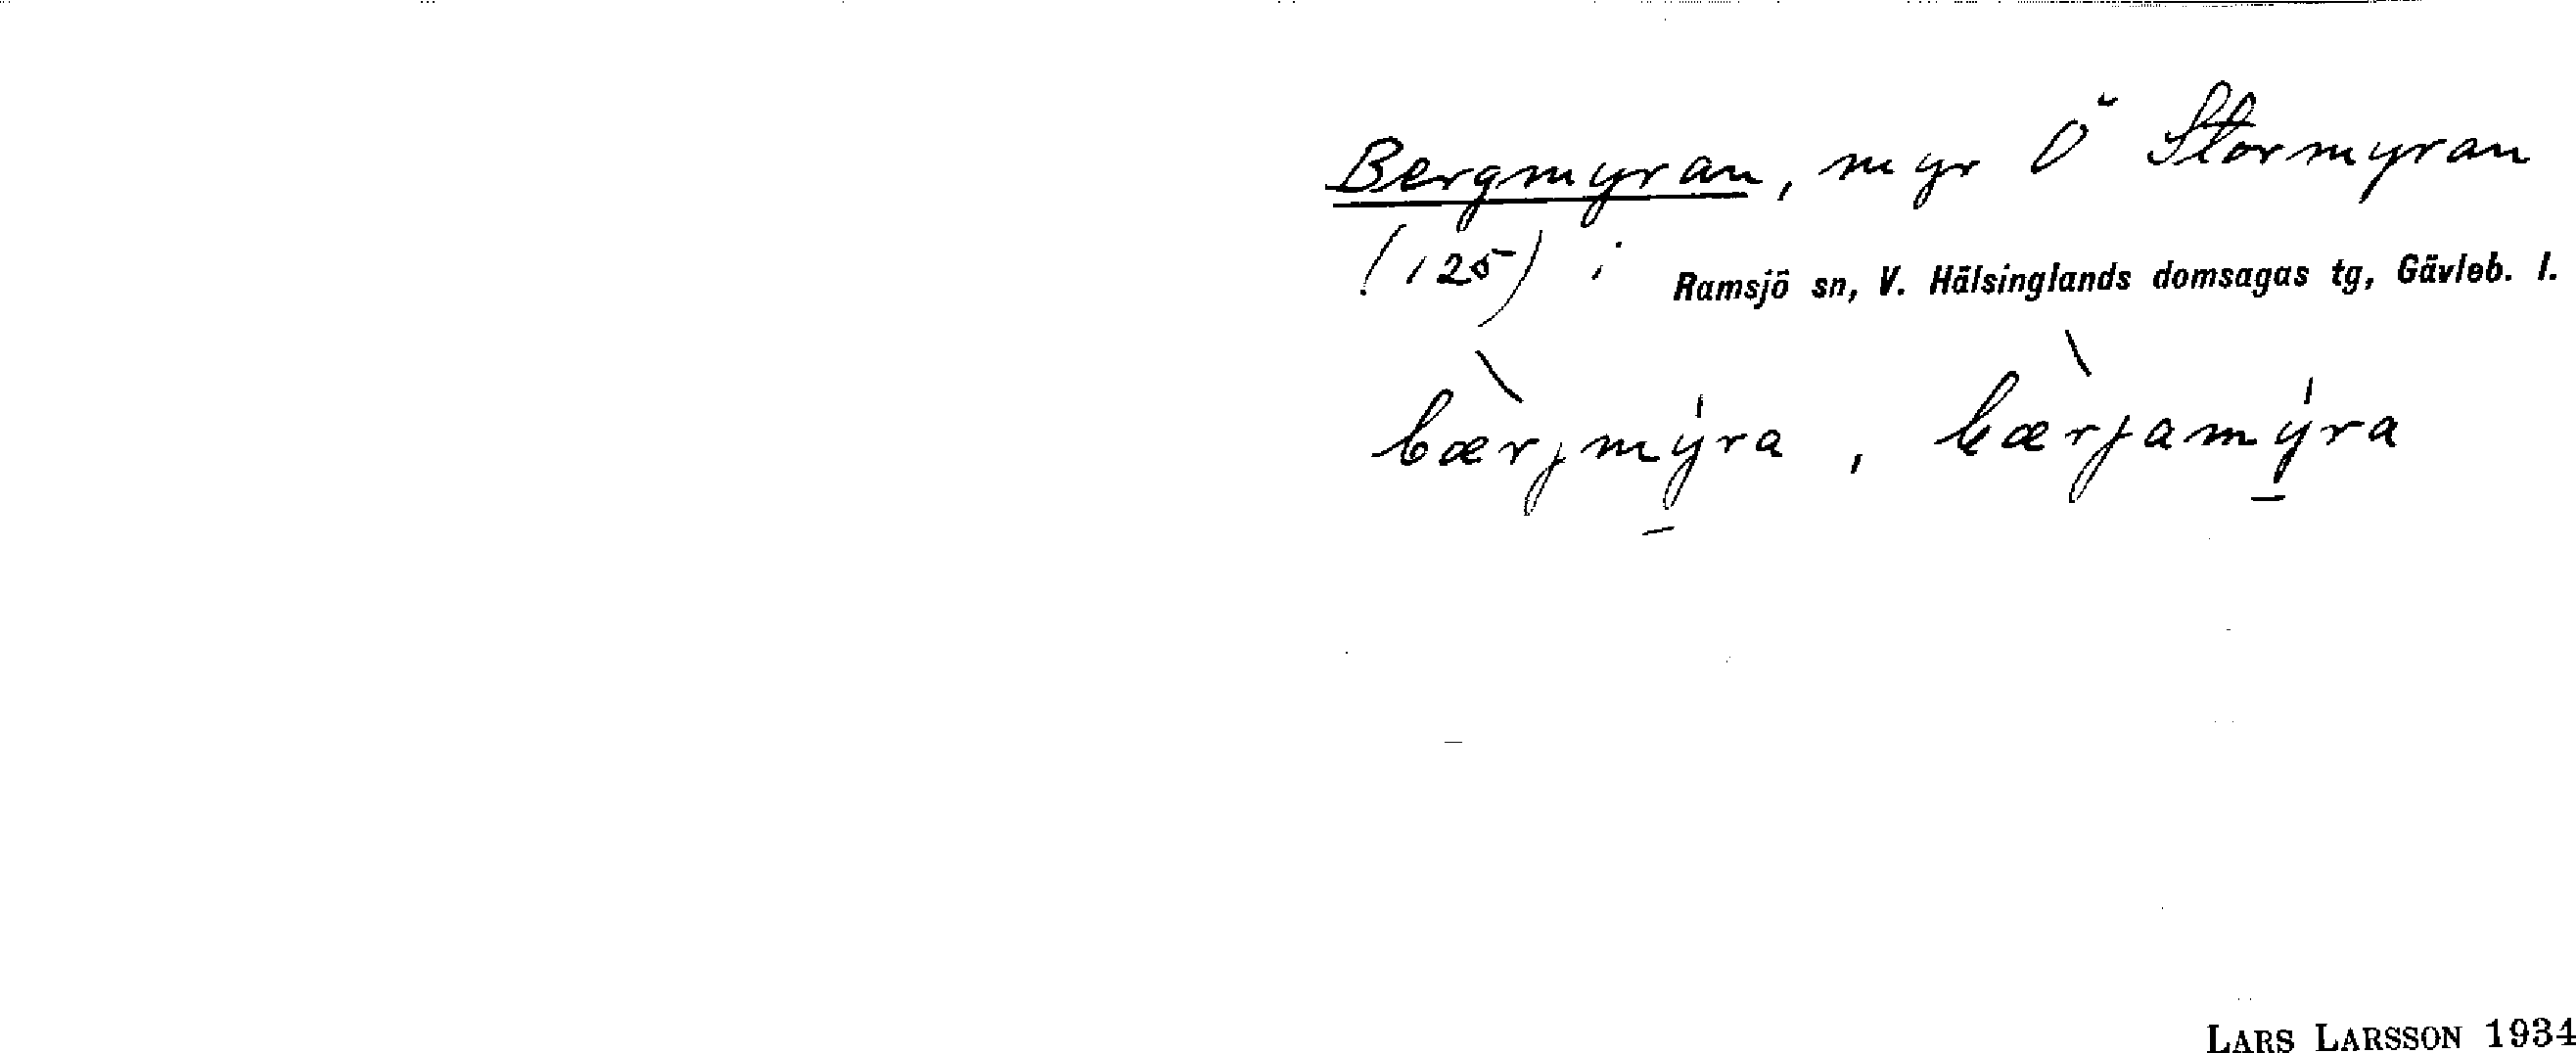 Bergmyran, myr Ö Stormyran
(125) i Ramsjö sn, V. Hälsinglands domsagas tg, Gävleb. l.
bæ̀rjmy̍ra, bæ̀rjamy̍ra
LARS LARSSON 1934